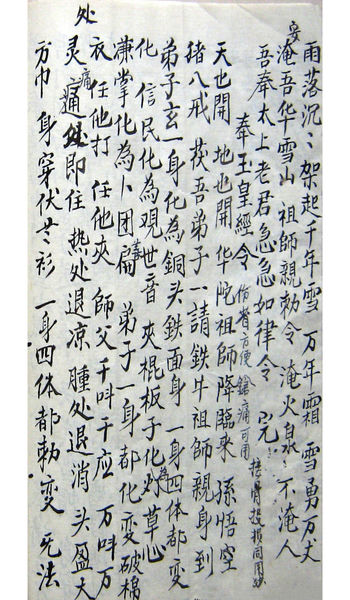 雨落沉〻架起千年雪万年霜 雪勇万丈
淹吾华雪山 祖師親勅令 淹火泉〻不淹人
吾奉太上老君急急如律令
奉玉皇經令 伤者方便鎗痛可用
接骨投損同用
天也開 地也開 华陀祖師降臨来 孫悟空
猪八戒 吾弟子一請鉄牛祖師親身到
弟子玄一身化為銅头鉄面身 一身四体都变
化 信民化為观世音 夹棍板子化為灯草心
濂掌化為卜团扁 弟子一身都化变破棉
衣 任他打 任他夹 師父千叫千应 万叫万
灵 痛处即住 热处退凉 腫处退消 头盔大
方巾 身穿伏 衫 一身四体都勅变 无法
处